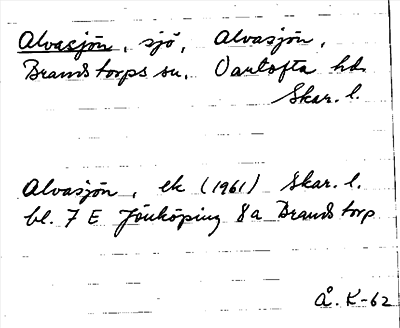 Alvasjön, sjö, Alvasjön,
Brandstorps sn, Vartofta hd
Skar. l.
Alvasjön, ek (1961) Skar. l.
bl. 7 E Jönköping 8a Brandstorp
Å. K-62